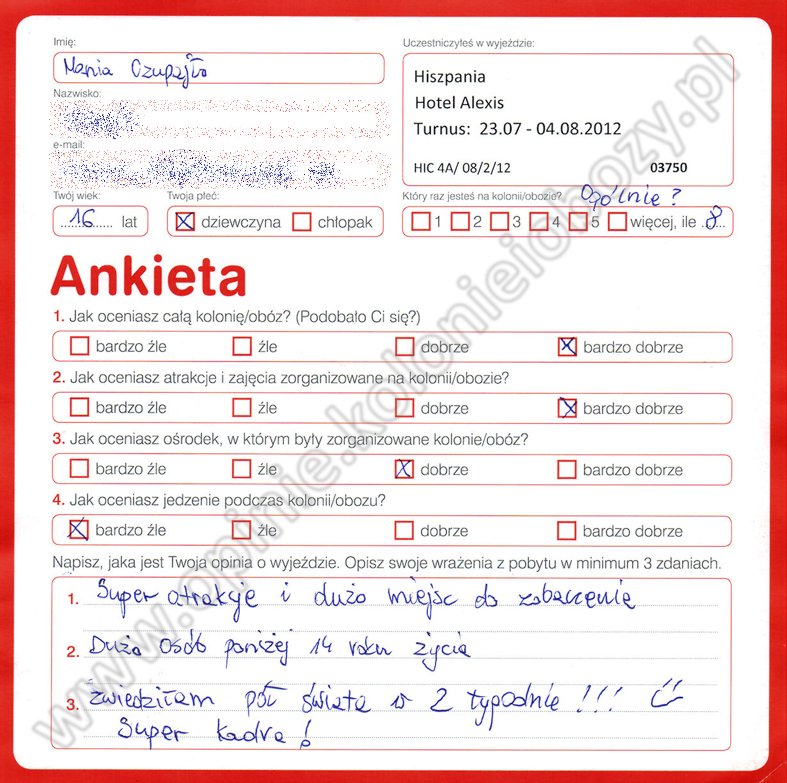 Imię:
Mania Czupajło
Nazwisko:
e-mail:
Twój wiek:
16 lat
Twoja płeć:
dziewczyna chłopak
Uczestniczyłeś w wyjeździe:
Hiszpania
Hotel Alexis
Turnus: 23.07 - 04.08.2012
HIC 4A/ 08/2/12 03750
Który raz jesteś na kolonii/obozie? Ogólnie?
1 2 3 4 5 więcej, ile 8
Ankieta
1. Jak oceniasz całą kolonię/obóz? (Podobało Ci się?)
bardzo źle źle dobrze bardzo dobrze
2. Jak oceniasz atrakcje i zajęcia zorganizowane na kolonii/obozie?
bardzo źle źle dobrze bardzo dobrze
3. Jak oceniasz ośrodek, w którym były zorganizowane kolonie/obóz?
bardzo źle źle dobrze bardzo dobrze
4. Jak oceniasz jedzenie podczas kolonii/obozu?
bardzo źle źle dobrze bardzo dobrze
Napisz, jaka jest Twoja opinia o wyjeździe. Opisz swoje wrażenia z pobytu w minimum 3 zdaniach.
1. Super atrakcje i dużo miejsc do zobaczenia
2. Dużo osób poniżej 14 roku życia
3. Zwiedziłam pół świata w 2 tygodnie !!!
Super kadra !
www.opinie.kolonieiobozy.pl